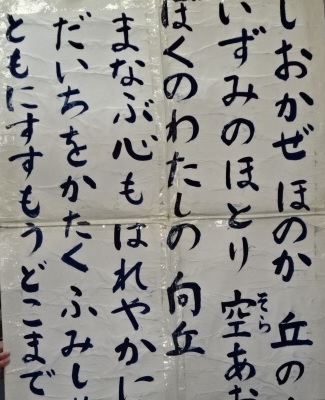 しおかぜ ほのか 丘の
いずみのほとり 空あお
そら
ぼくのわたしの 向丘
まなぶ心も はれやかに
だいちをかたく ふみし
ともにすすもう どこまで